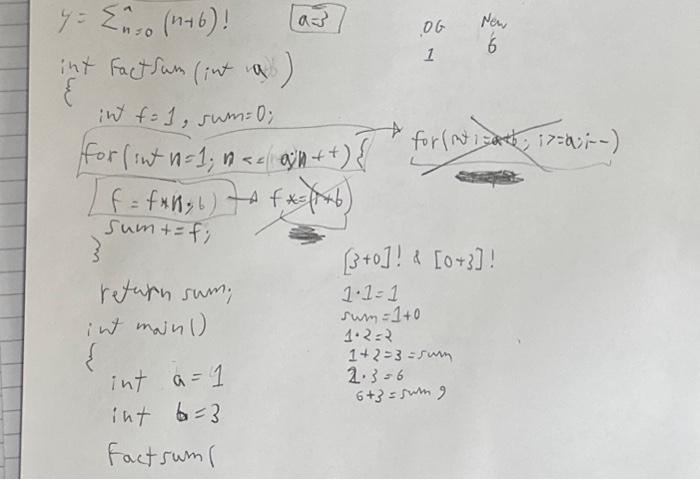 y = Σⁿ₌₀ᵃ (n+b)!
a=3
OG New
1 6
int FactSum (int a)
{
int f=1, sum=0;
for(int n=1; n <= a; n++) {
for(int i=a+b; i>=a; i--)
f = f*n; b)
f *= (i+b)
sum += f;
}
return sum;
int main()
{
int a = 1
int b = 3
Factsum(
[3+0]! & [0+3]!
1·1=1
sum=1+0
1·2=2
1+2=3=sum
2·3=6
6+3=sum 9